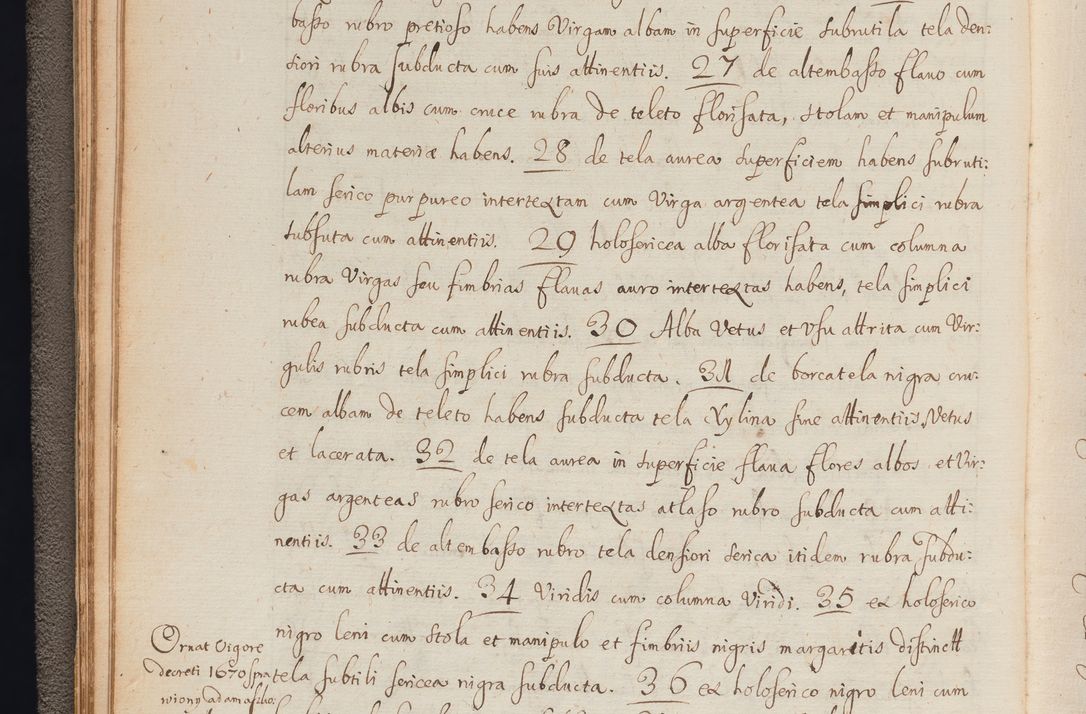 basso rubro pretioso habens Virgam albam in superficie subrutila tela den:
siori rubra subducta cum suis attinentiis. 27 de altembasso flauo cum
floribus albis cum cruce rubra de teleto florisata, stolam et manipulum
alterius materiæ habens. 28 de tela aurea superficiem habens subruti:
lam serico purpureo intertextam cum Virga argentea tela simplici rubra
subsuta cum attinentiis. 29 holosericea alba florisata cum columna
rubra Virgas seu fimbrias flauas auro intertextas habens, tela simplici
rubea subducta cum attinentiis. 30 Alba Vetus et Vsu attrita cum Vir:
gulis rubris tela simplici rubra subducta. 31 de borcatela nigra cru:
cem albam de teleto habens subducta tela Xylina sine attinentiis, Vetus
et lacerata. 32 de tela aurea in superficie flaua flores albos et Vir:
gas argenteas rubro serico intertextas atlaso rubro subducta cum atti:
nentiis. 33 de altembasso rubro tela densiori serica itidem rubra subdu:
cta cum attinentiis. 34 Viridis cum columna Viridi. 35 ex holoserico
nigro leni cum stola et manipulo et fimbriis nigris margaritis distinctt
tela subtili sericea nigra subducta. 36 ex holoserico nigro leni cum
Ornat Vigore
decreti 1670 spra
wiony adamaszko: